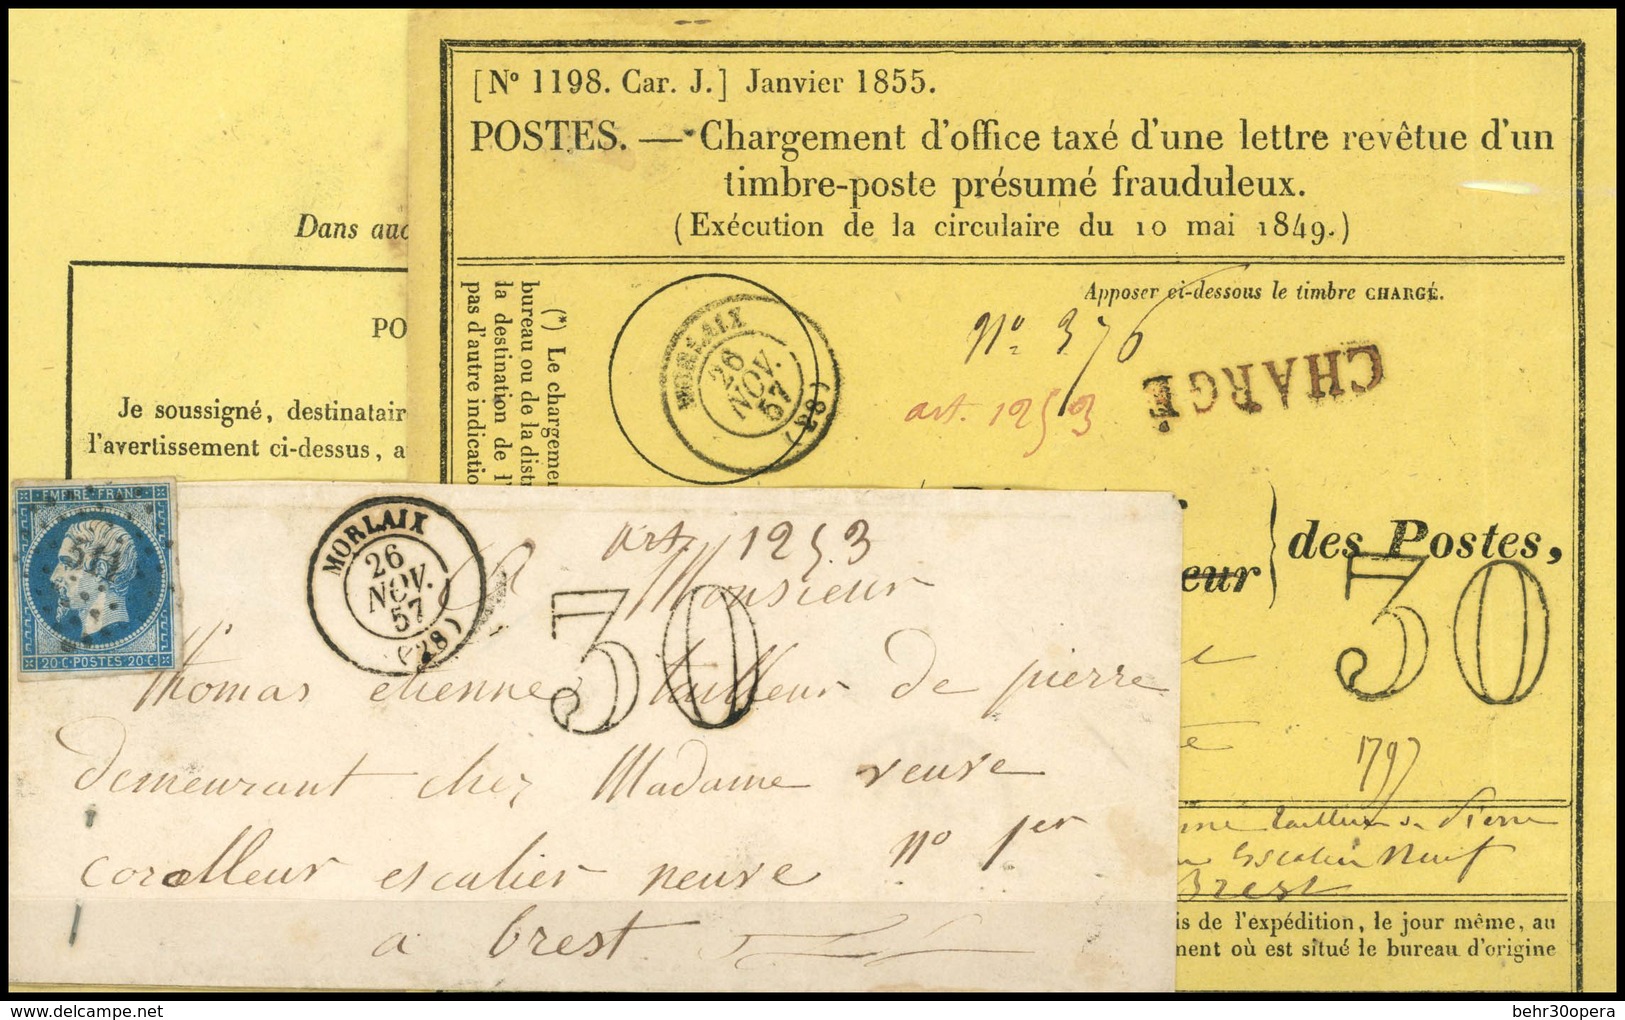 [N° 1198. Car. J.] Janvier 1855.
POSTES. — Chargement d'office taxé d'une lettre revêtue d'un
timbre-poste présumé frauduleux.
(Exécution de la circulaire du 10 mai 1849.)
Dans auc
PO
Je soussigné, destinatair
l'avertissement ci-dessus, a
(*) Le chargemen
bureau ou de la distr
la destination de l'
pas d'autre indicatio
MORLAIX
26
NOV.
57
(28)
Apposer ci-dessous le timbre CHARGÉ.
N° 376
art. 1253
CHARGÉ
des Postes,
eur
30
1797
Brest
is de l'expédition, le jour même, au
ment où est situé le bureau d'origine
EMPIRE FRANC
20 C. POSTES 20 C.
MORLAIX
26
NOV.
57
(28)
art. 1253
30
Monsieur
thomas etienne tailleur de pierre
demeurant chez Madame veuve
coralleur escalier neuve n° 1er
a brest
www.delcampe.net
behr30opera